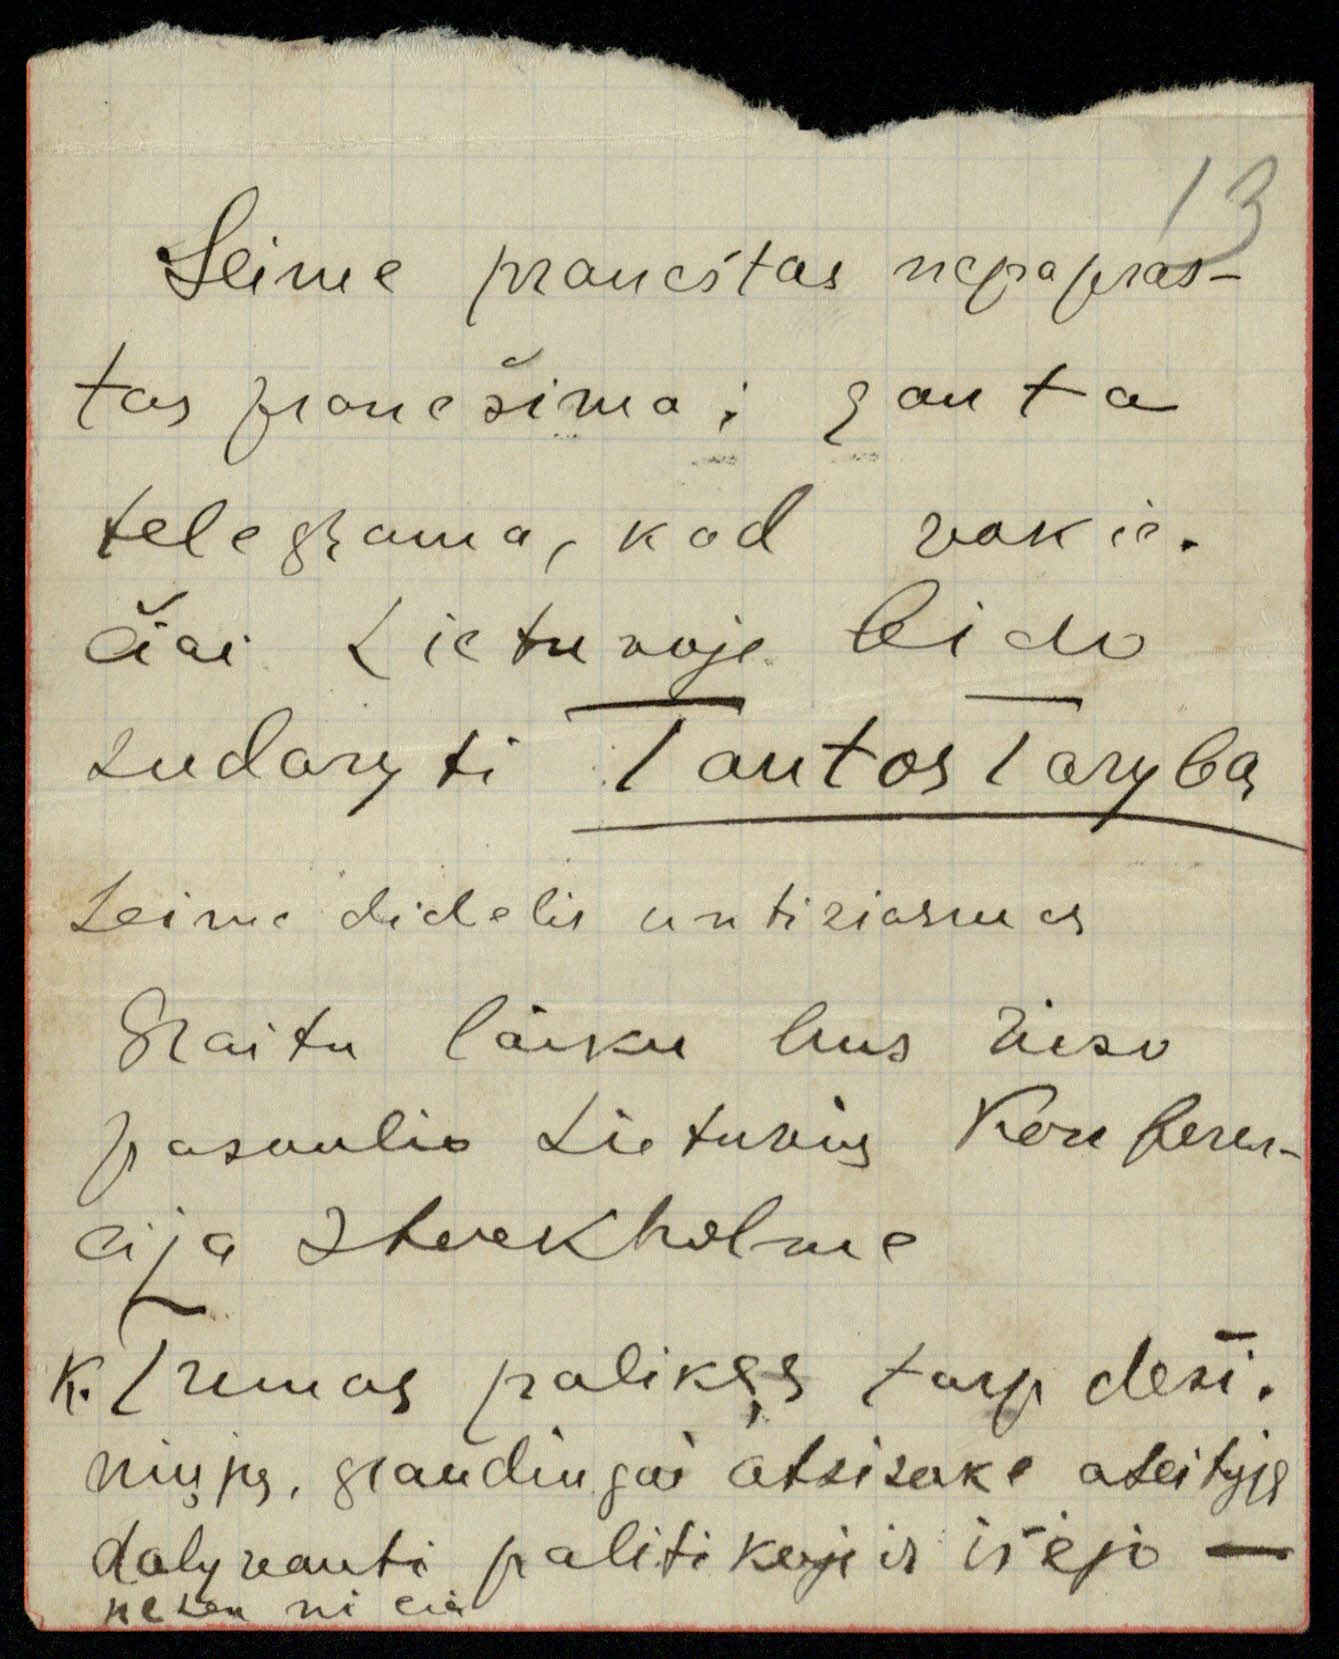 13
Seime praneštas nepapras-
tas pranešima; gauta
telegrama, kad vokie-
čiai Lietuvoje leido
sudaryti Tautos Tarybą
Seime didelis untiziasmas
Graitu laiku bus viso
pasaulio Lietuvių Konferen-
cija Stockholme
K. Trumas palikęs tarp deši-
niųjų, graudingai atsisakė ateityję
dalyvauti palitikoje ir išėjo —
nesen ni cia